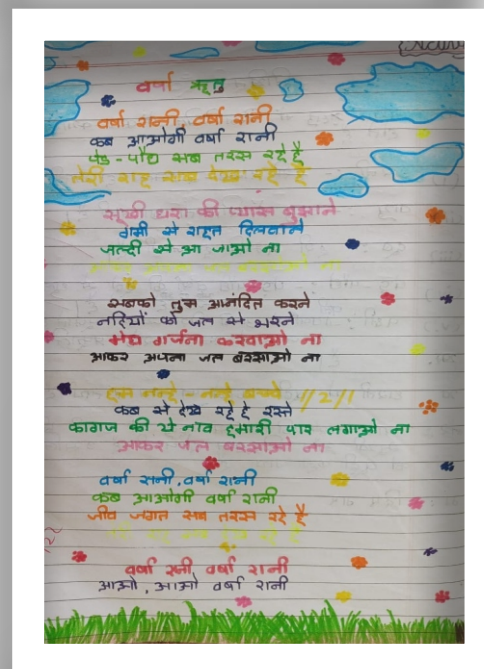 वर्षा ऋतु
वर्षा रानी, वर्षा रानी
कब आओगी वर्षा रानी
पेड़ - पौधे सब तरस रहे हैं
तेरी राह सब देख रहे हैं
सूखी धरा की प्यास बुझाने
गर्मी से राहत दिलवाने
जल्दी से आ जाओ ना
आकर अपना जल बरसाओ ना
सबको तुम आनंदित करने
नदियों को जल से भरने
मेघ गर्जना करवाओ ना
आकर अपना जल बरसाओ ना
हम नन्हे - नन्हे बच्चे //2//
कब से देख रहे है रस्ते
कागज की ये नाव हमारी पार लगाओ ना
आकर जल बरसाओ ना
वर्षा रानी, वर्षा रानी
कब आओगी वर्षा रानी
जीव जगत सब तरस रहे हैं
वर्षा रानी वर्षा रानी
आओ, आओ वर्षा रानी